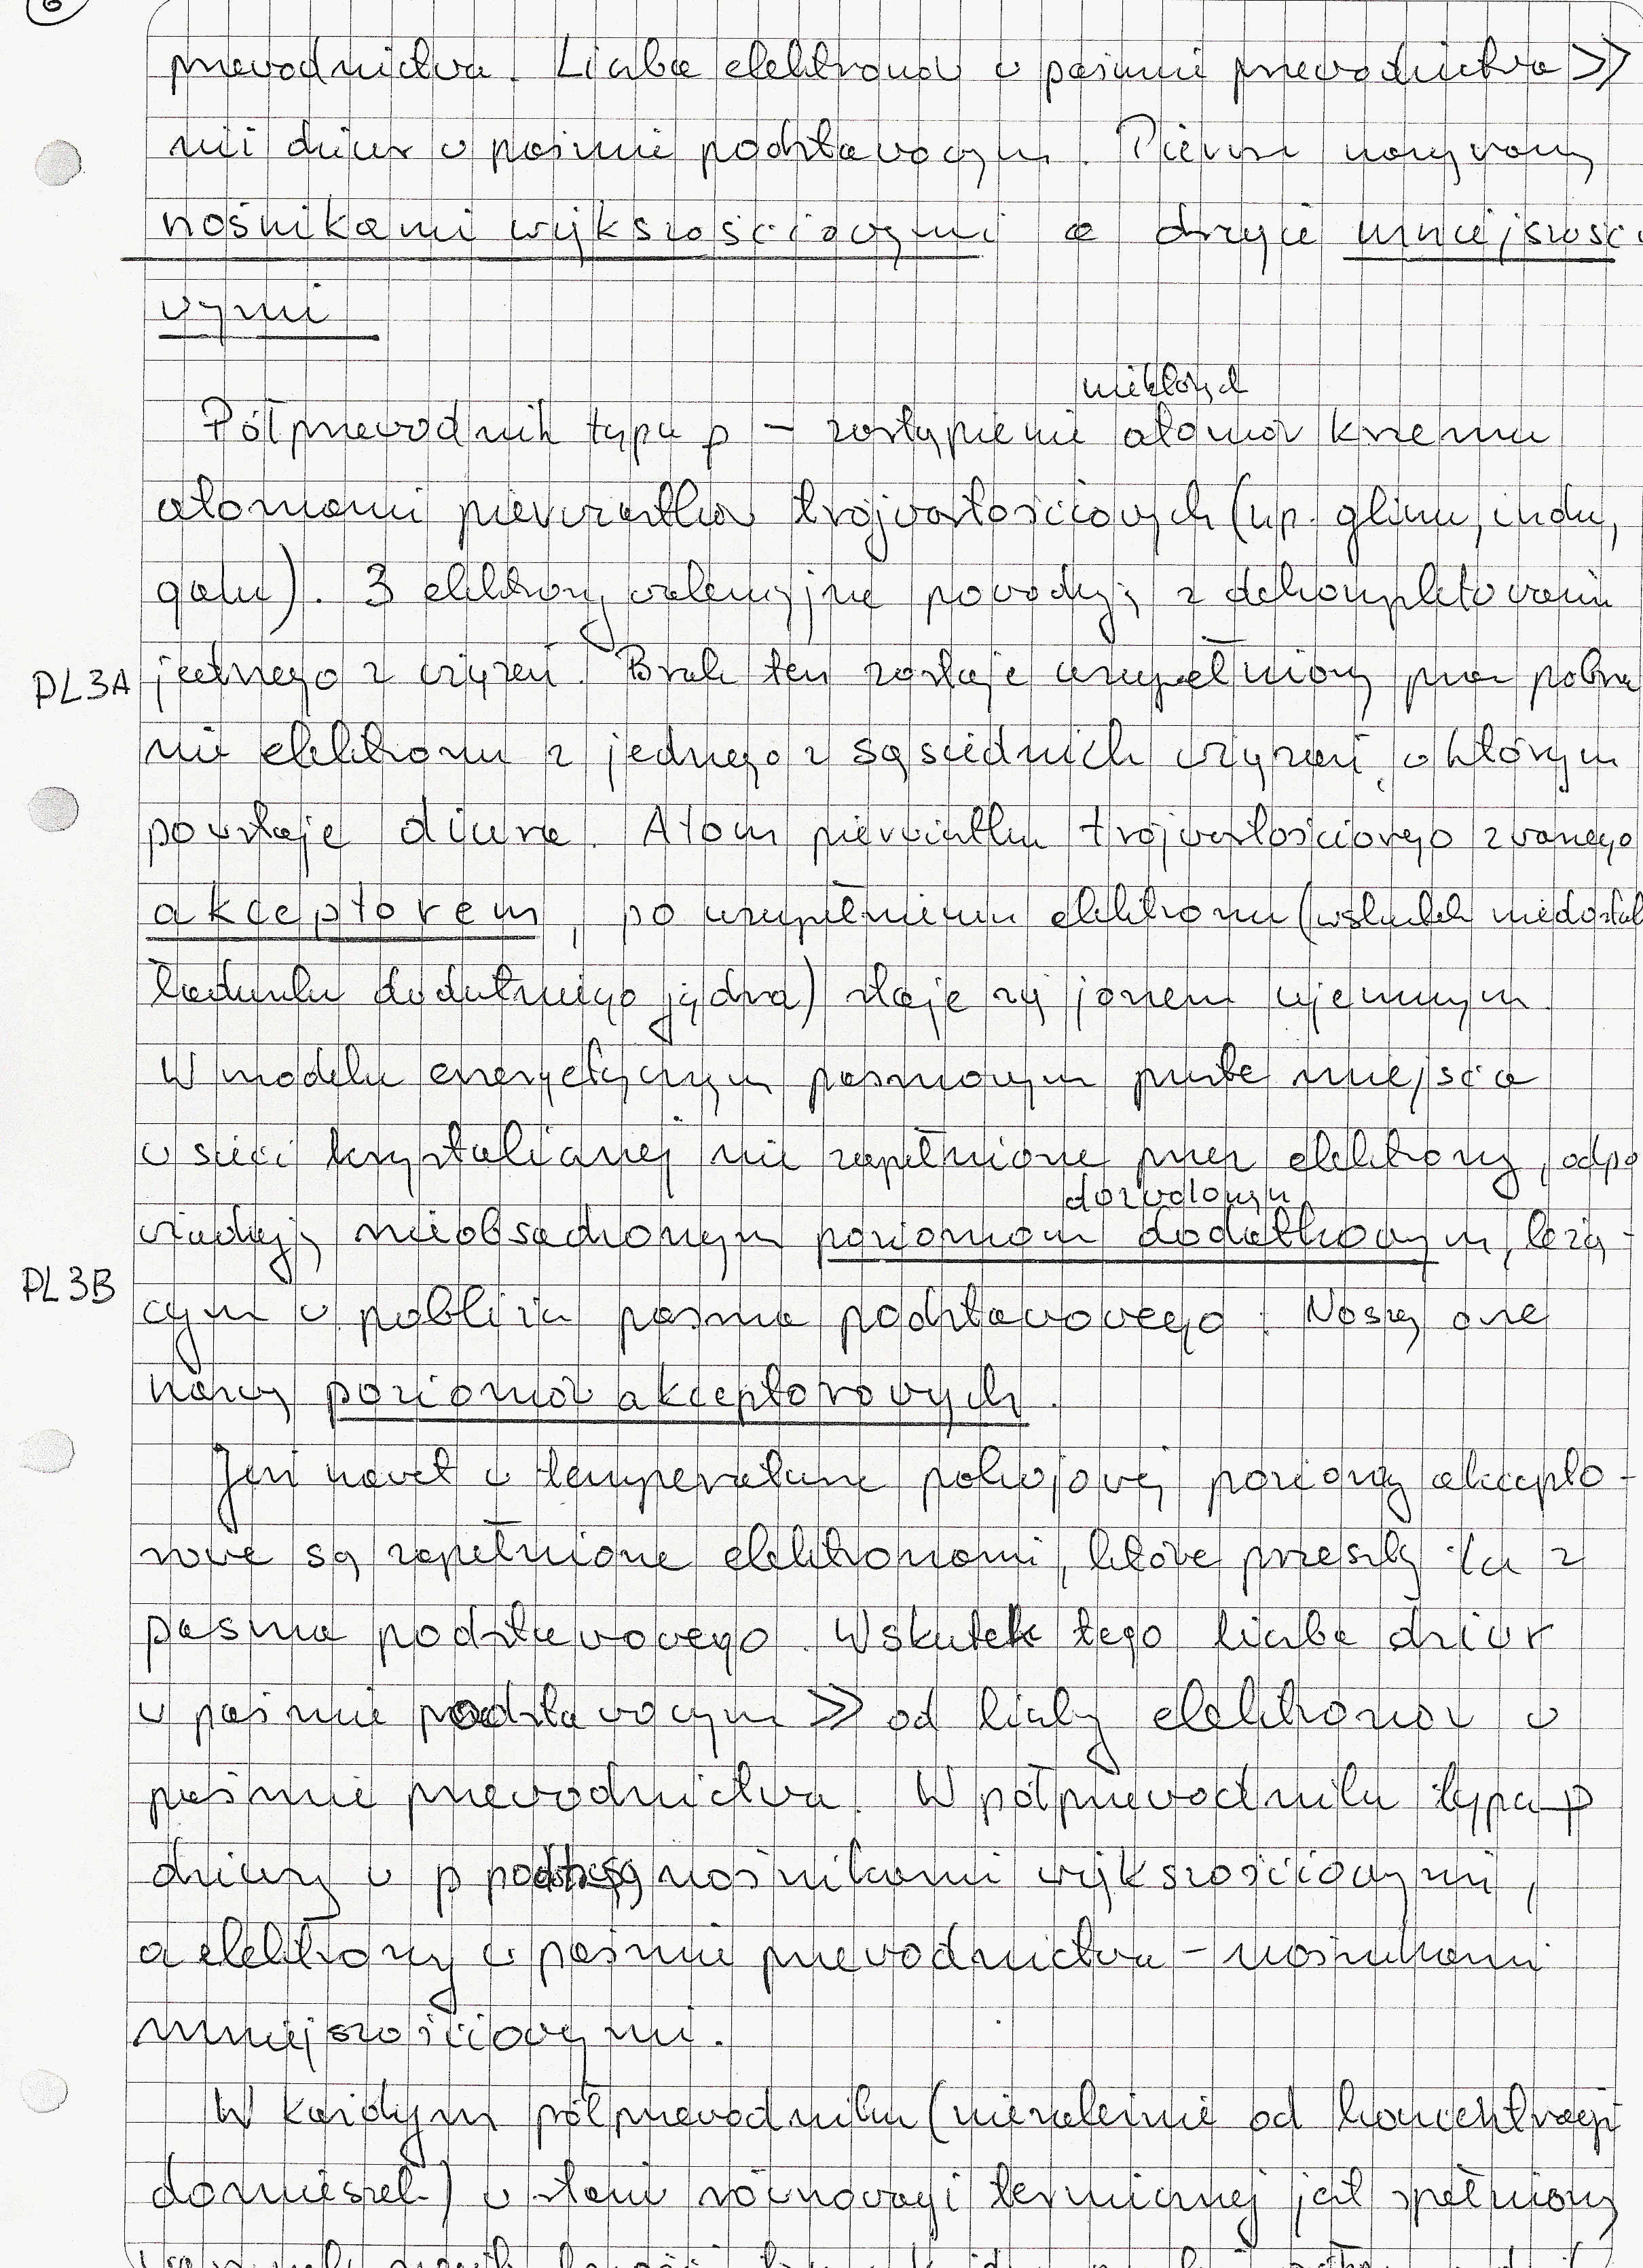 6
przewodnictwa. Liczba elektronów w paśmie przewodnictwa >>
niż dziur w paśmie podstawowym. Pierwsze nazywamy
nośnikami większościowymi a drugie mniejszościo
wymi
niektórych
Półprzewodnik typu p – zastąpienie atomów krzemu
atomami pierwiastków trójwartościowych (np. glinu, indu,
galu). 3 elektrony walencyjne powodują zdekompletowanie
PL3A jednego z wiązań. Brak ten zostaje uzupełniony przez pobra
nie elektronu z jednego z sąsiednich wiązań, w którym
powstaje dziura. Atom pierwiastka trójwartościowego zwanego
akceptorem, po uzupełnieniu elektronu (wskutek niedostat
ładunku dodatniego jądra) staje się jonem ujemnym.
W modelu energetycznym pasmowym puste miejsca
w sieci krystalicznej nie zapełnione przez elektrony, odpo
dozwolonym
wiadają nieobsadzonym poziomom dodatkowym, leżą-
PL3B cym w pobliżu pasma podstawowego. Noszą one
nazwę poziomów akceptorowych.
Już nawet w temperaturze pokojowej poziomy akcepto-
rowe są zapełnione elektronami, które przeszły tu z
pasma podstawowego. Wskutek tego liczba dziur
w paśmie podstawowym >> od liczby elektronów w
paśmie przewodnictwa. W półprzewodniku typu p
dziury w p podst są nośnikami większościowymi,
a elektrony w paśmie przewodnictwa – nośnikami
mniejszościowymi.
W każdym półprzewodniku (niezależnie od koncentracji
domieszek) w stanie równowagi termicznej jest spełniony